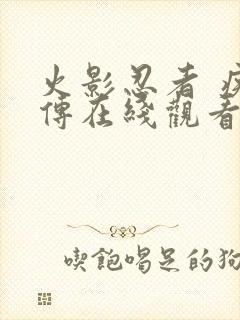 火影忍者 疾
傳在綫觀看
喫飽喝足的狗